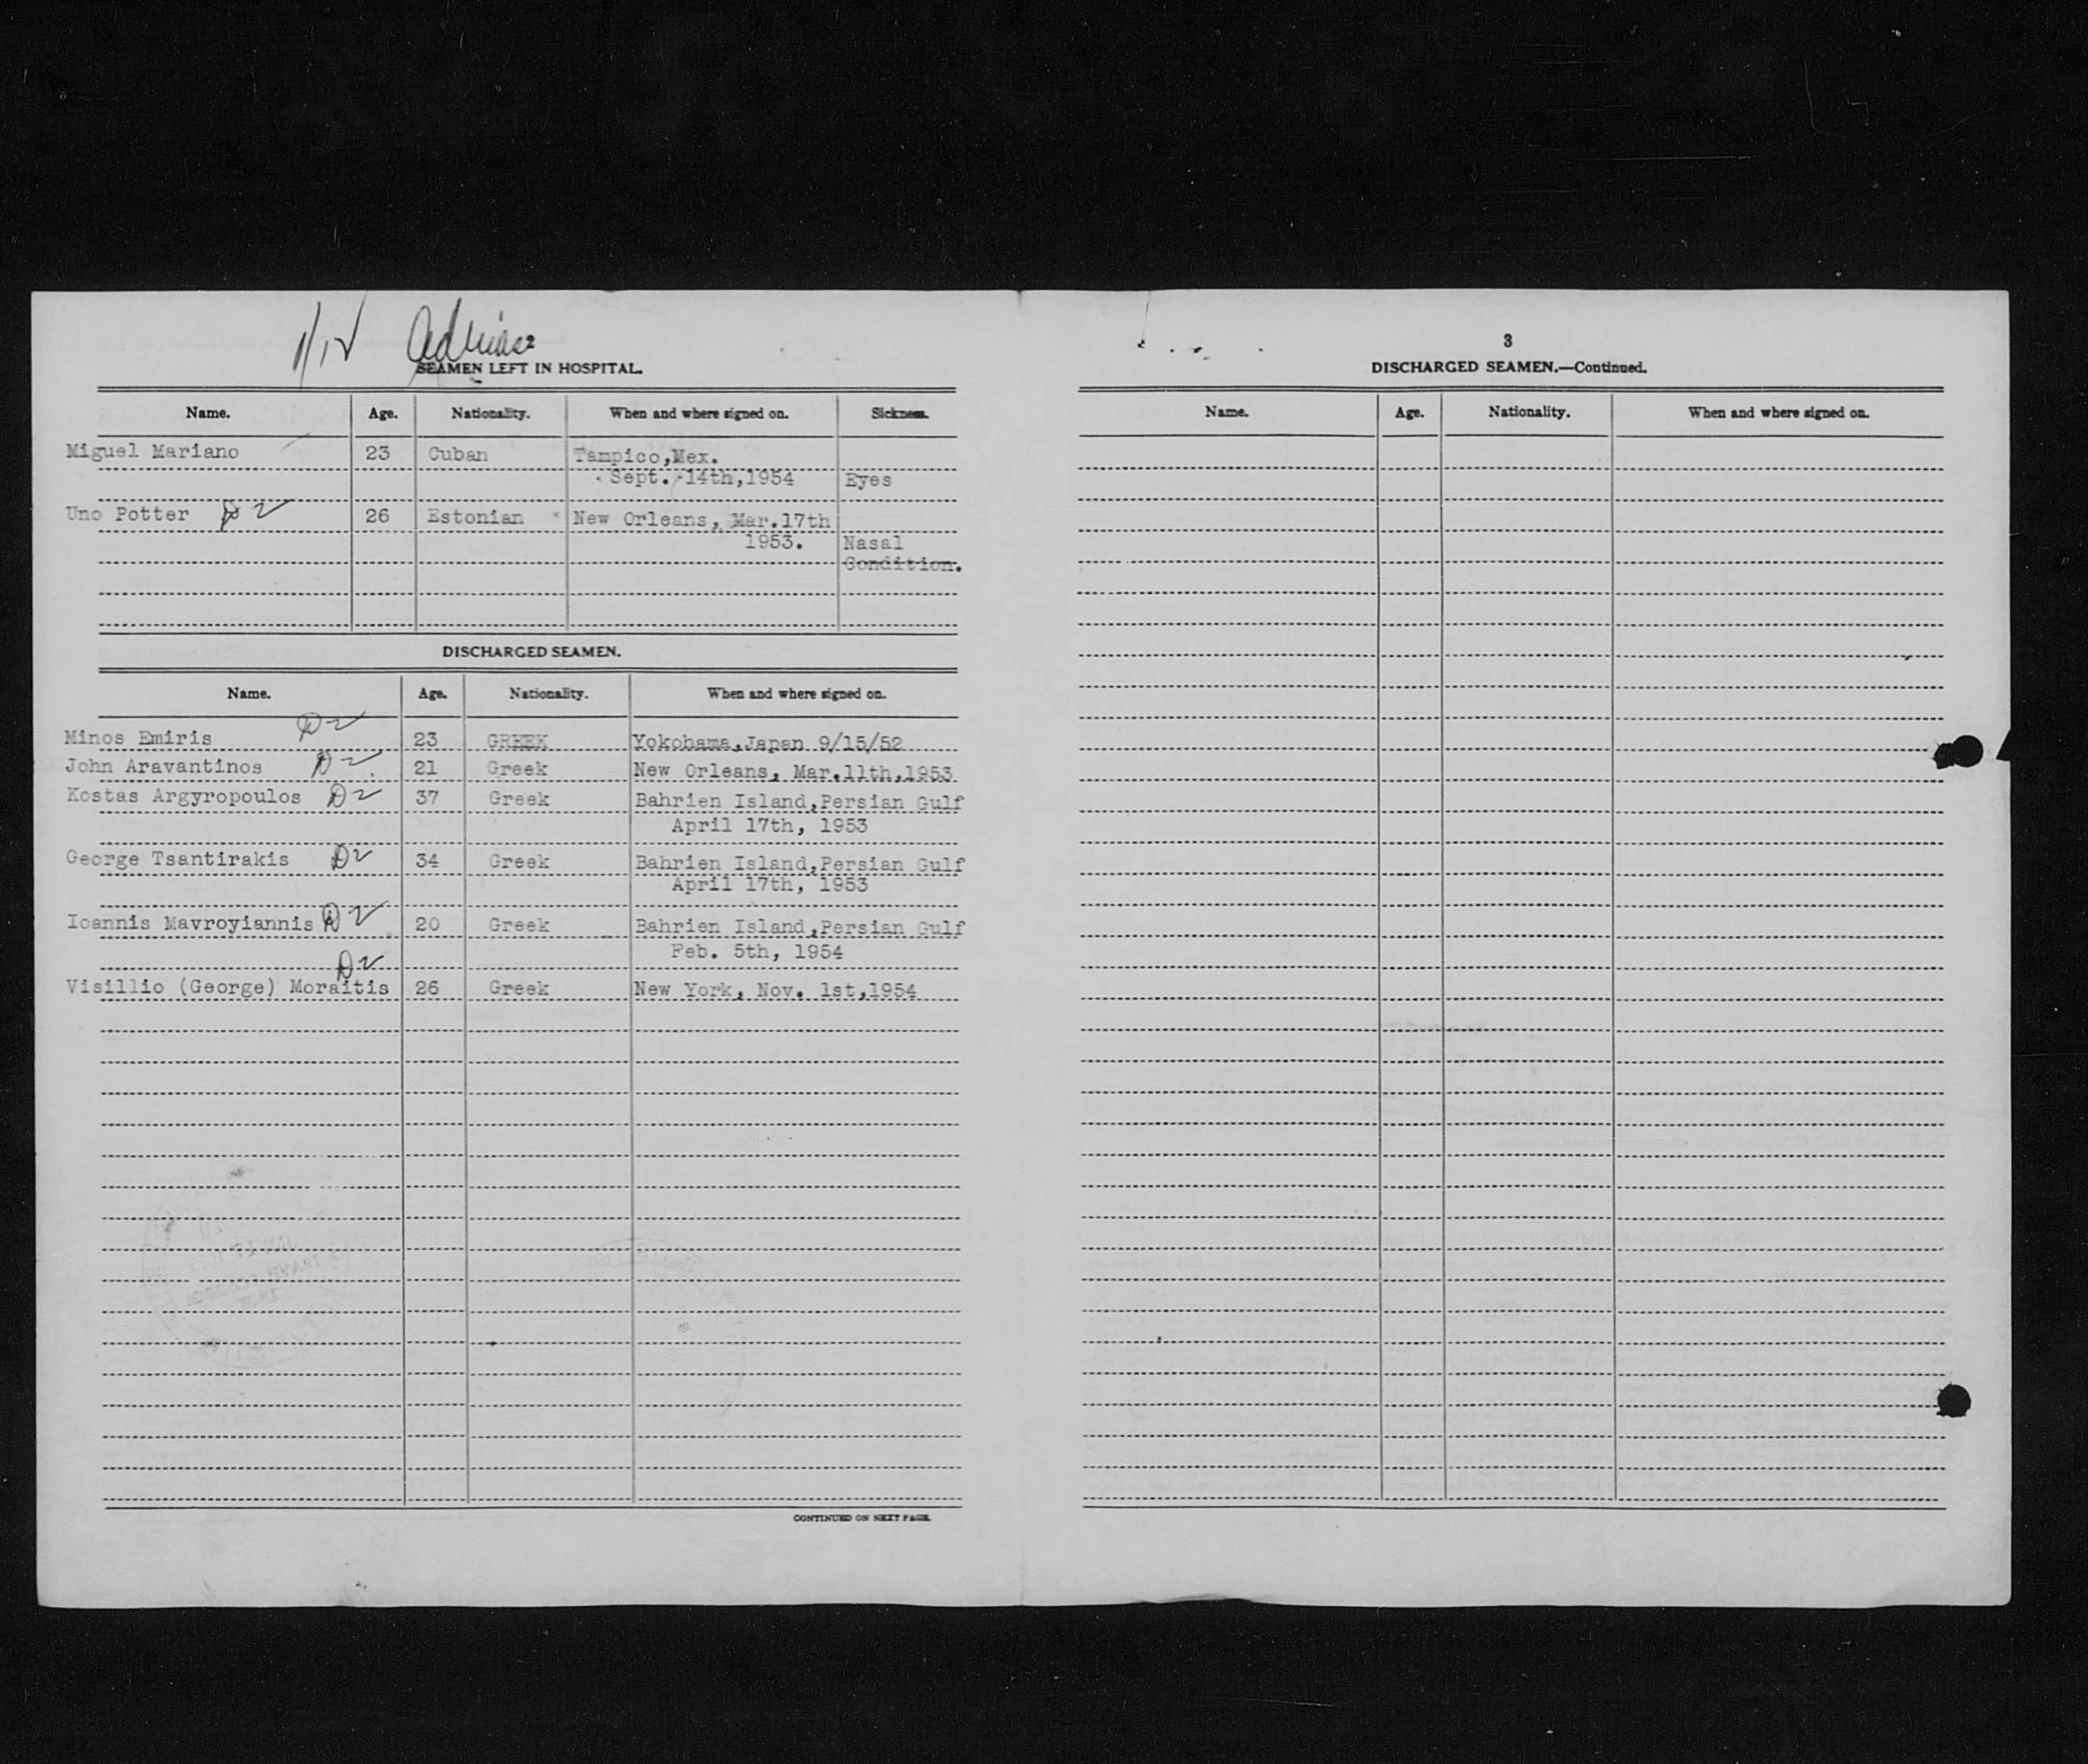 2
SEAMEN LEFT IN HOSPITAL.
Name. Age. Nationality. When and where signed on. Sickness.
Miguel Mariano 23 Cuban Tampico,Mex.
Sept. 14th,1954 Eyes
Uno Potter D2 26 Estonian New Orleans, Mar.17th
1953. Nasal
Condition.
DISCHARGED SEAMEN.
Name. Age. Nationality. When and where signed on.
D2
Minos Emiris 23 GREEK Yokohama,Japan 9/15/52
John Aravantinos D2 21 Greek New Orleans, Mar.11th,1953
Kostas Argyropoulos D2 37 Greek Bahrien Island,Persian Gulf
April 17th, 1953
George Tsantirakis D2 34 Greek Bahrien Island,Persian Gulf
April 17th, 1953
Ioannis Mavroyiannis D2 20 Greek Bahrien Island,Persian Gulf
Feb. 5th, 1954
D2
Visillio (George) Moraitis 26 Greek New York, Nov. 1st,1954
CONTINUED ON NEXT PAGE.
3
DISCHARGED SEAMEN.—Continued.
Name. Age. Nationality. When and where signed on.